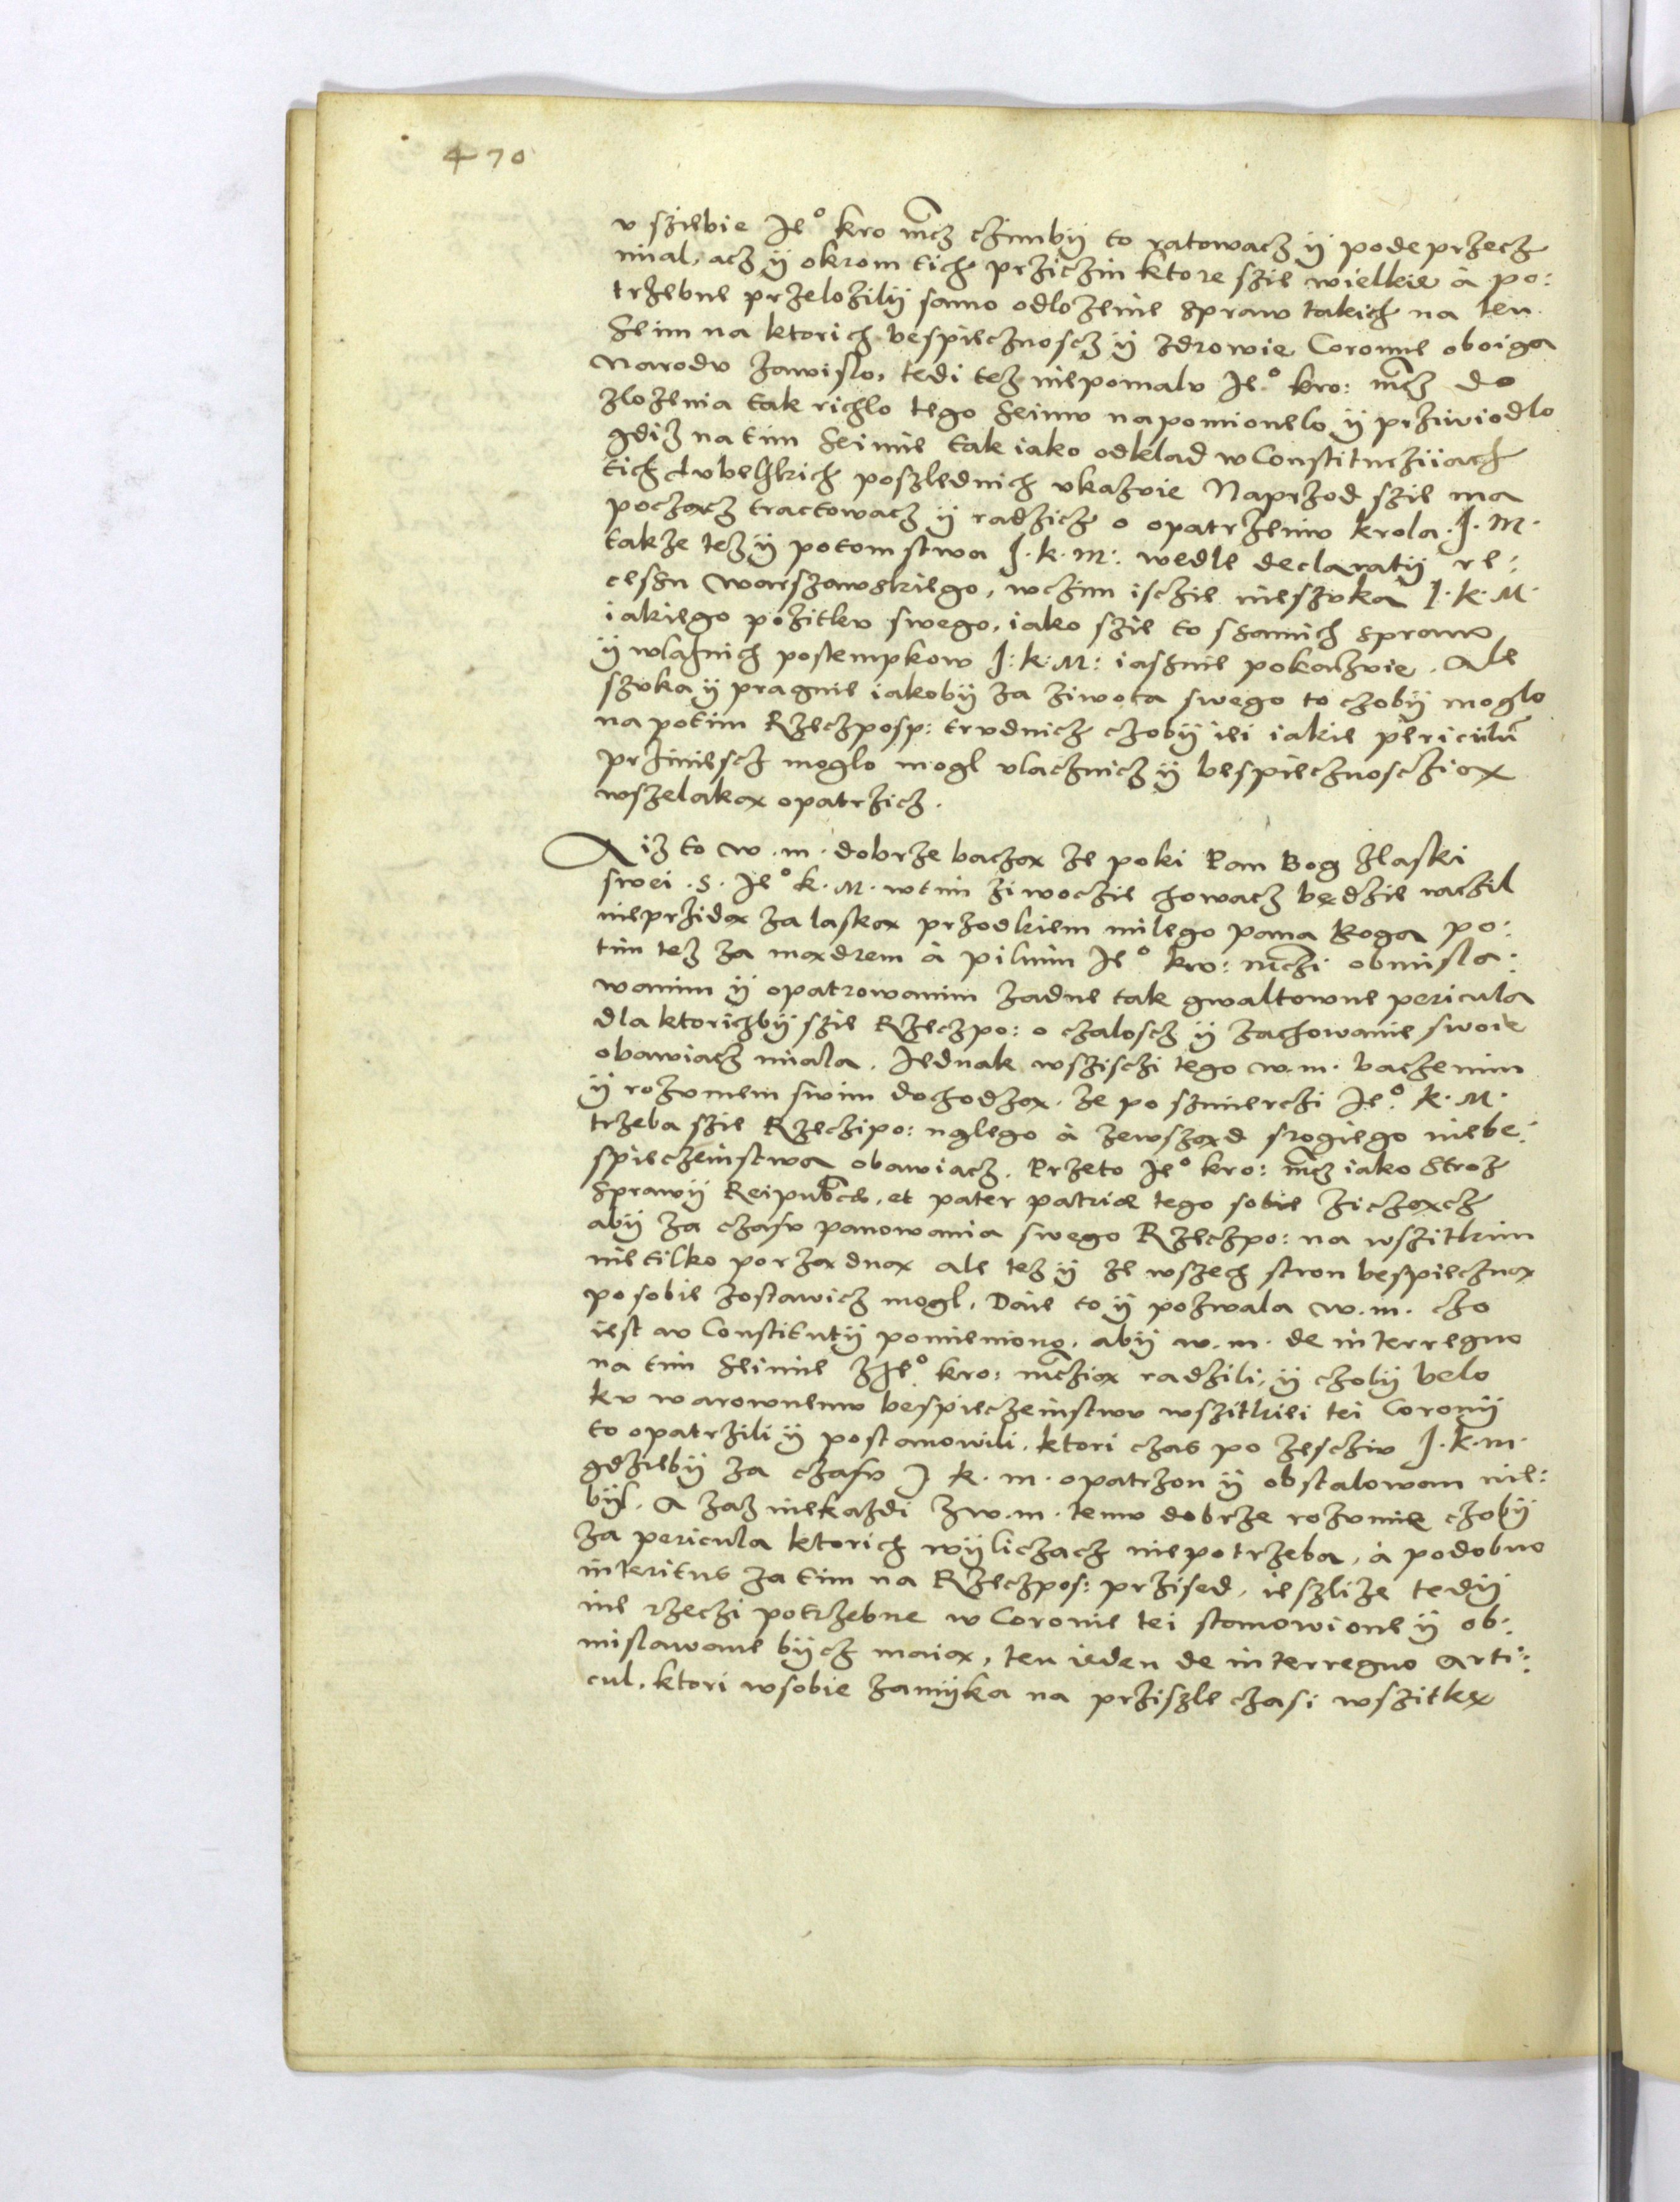 470
v sziebie Ie° kro mcz czimbÿ to ratowacz ÿ podeprzecz
mial, acz ÿ okrom tich prziczin ktore szie wielkie à po:
trzebne przelozilÿ samo odlozenie spraw takich na ten
Seim na ktorich bespiecznoscz ÿ zdrowie Coronne oboiga
Narodv zawislo, tedi tez niepomalv Ie° kro: mcz do
zlozenia tak richlo tego Seimv napomionelo ÿ prziwiodlo
gdiz na tim Seimie tak iako odklad w Constituciiach
tich Lvbelskich poszlednich vkazvie Naprzod szie ma
poczacz tractowacz ÿ radzicz o opatrzeniv krola. J. M.
takze tez ÿ potomstwa J. k. m: wedle declaratÿ re:
cessu Warszawskiego, wczim isczie nieszvka J. k. M.
iakiego pozitkv swego, iako szie to ssamich spraw
ÿ wlasnich postempkow J: k: M: iasznie pokazvie. Ale
szvka ÿ pragnie iakobÿ za ziwota swego to czobÿ moglo
na potim Rzeczposp: trvdnicz czobÿ iei iakie periculum
prziniescz moglo mogl vlacznicz ÿ bespiecznosciax
wszelakax opatrzicz.
A iz to w. m. dobrze baczax ze poki Pan Bog zlaski
swei. S. Ie° k. M. wtim ziwoczie chowacz będzie raczil
nieprzidax za laskax przodkiem milego pana Boga po:
tim tez za maxdrem à pilnim Ie° kro: mczi obmisla:
wanim ÿ opatrowanim zadne tak gwaltowne pericula
dla ktorichbÿ szie Rzeczpo: o czaloscz ÿ zachowanie swoie
obawiacz miala. Iednak wszisczi tego w. m. baczenim
ÿ rozvmem swim dochodzax. ze po szmierczi Ie° k. M.
trzeba szie Rzeczipo: naglego à zewszaxd srogiego niebe:
spieczeinstwa obawiacz. Przeto Ie° kro: mcz iako Stroz
Sprawÿ Reipublicae, et pater patriae tego sobie ziczaxcz
abÿ za czasv panowania swego Rzeczpo: na wszitkim
nietilko porzaxdnax ale tez ÿ ze wszech stron bespiecznax
po sobie zostawicz mogl, Daie to ÿ pozwala w. m. czo
iest w Constitutÿ pomieniono, abÿ w. m. de interregno
na tim Seimie z Ie° kro: mcziax radzili, ÿ czolÿ belo
kv warownemv bespieczeinstwv wszitkiei tei Coronÿ
to opatrzili ÿ postanowili. ktori czas po zesciv J. k. m.
gdziebÿ za czasv J. k. m. opatrzon ÿ obstalowan nie:
bÿl. A zaz niekazdi z w. m. temv dobrze rozvmie czobÿ
za pericula ktorich wÿliczacz niepotrzeba, à podobno
interitus za tim na Rzeczpos: przised, ieszlize tedÿ
ine rzeczi potrzebne w Coronie tei stanowione ÿ ob:
mislawane bÿcz maiax, ten ieden de interregno Arti:
cul, ktori wsobie zamÿka na przisle czasi wszitkę